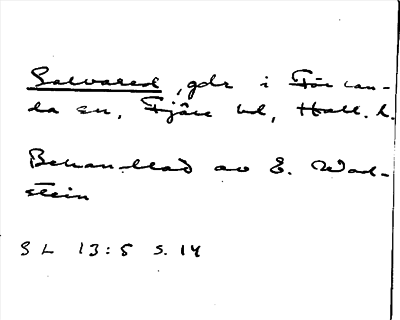 Salvared, gdr i Förlan-
da sn, Fjäre hd, Hall. l.
Behandlad av E. Wad-
stein
SL 13:5 s. 14